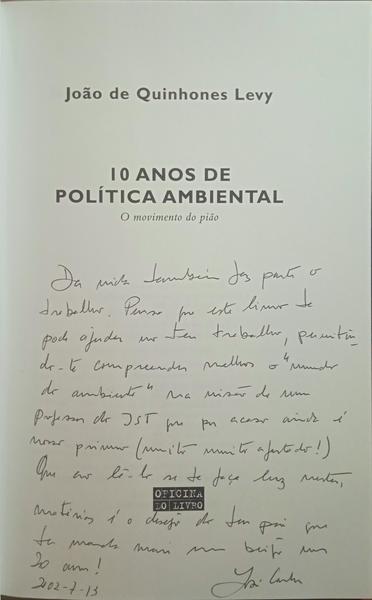 João de Quinhones Levy
10 ANOS DE
POLÍTICA AMBIENTAL
O movimento do pião
Da vida também faz parte o
trabalho. Penso que este livro te
pode ajudar no teu trabalho, permitin-
do-te compreender melhor o "mundo
do ambiente" na visão de um
Professor do IST que por acaso ainda é
nosso primo (muito muito afastado!)
Que ao lê-lo se te faça luz nestas
OFICINA
DO LIVRO
matérias é o desejo do teu pai que
te manda mais um beijo nos
30 anos!
2002-7-13